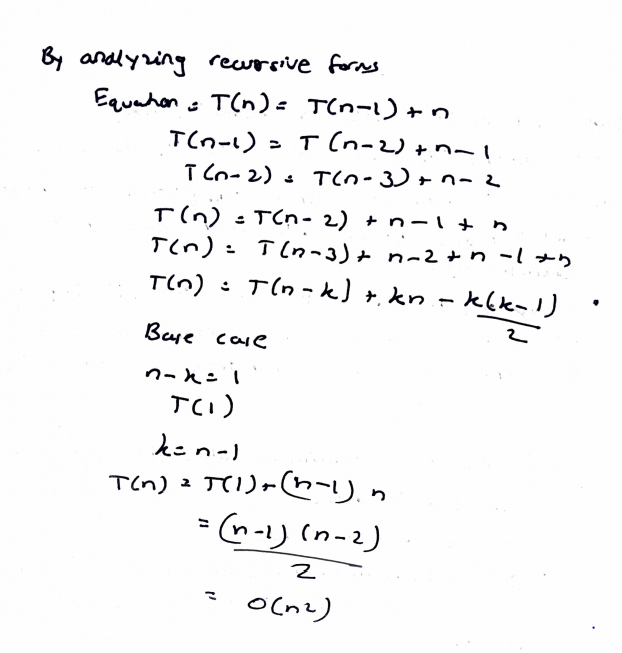 By analyzing recursive forms
Equation : T(n) = T(n-1) + n
T(n-1) = T(n-2) + n-1
T(n-2) = T(n-3) + n-2
T(n) = T(n-2) + n-1 + n
T(n) = T(n-3) + n-2 + n-1 + n
T(n) = T(n-k) + kn - k(k-1)/2
Base case
n-k = 1
T(1)
k = n-1
T(n) = T(1) + (n-1) . n
= (n-1) (n-2)/2
= O(n2)